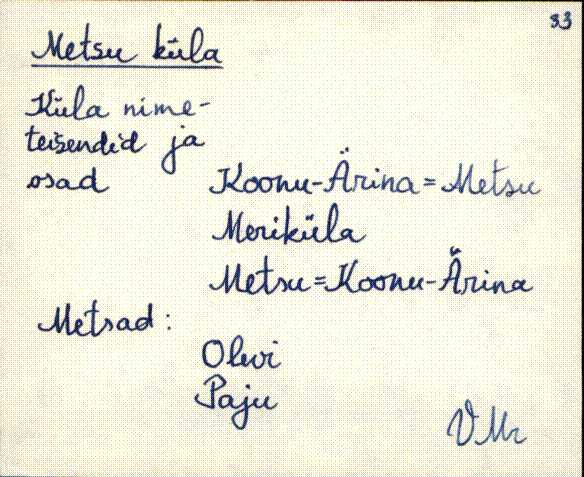 33
Metsu küla
Küla nime-
teisendid ja
osad
Koonu-Ärina = Metsu
Meriküla
Metsu = Koonu-Ärina
Metsad:
Olevi
Paju
VMr